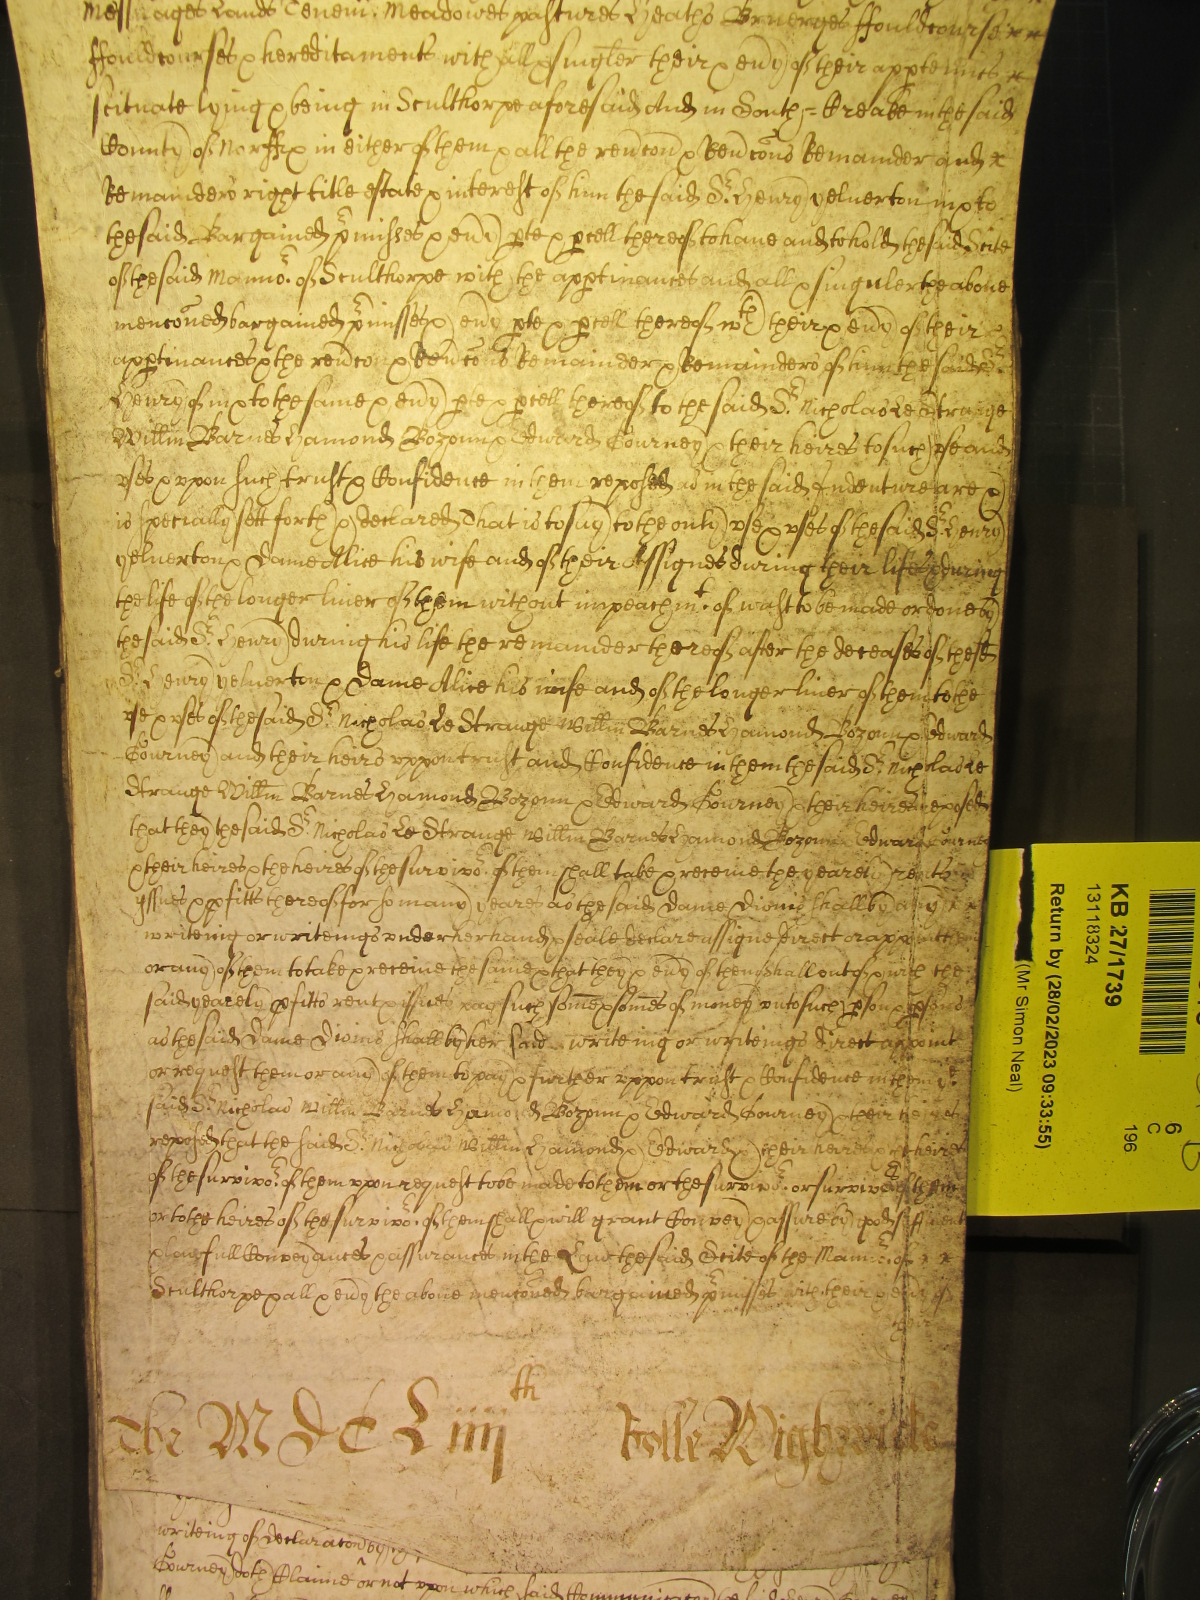 Messuages Lands Tenemt. Meadowes pastures Heaths Bruerges ffouldcourse
ffouldcourses & hereditaments with all & singler their & evy of their apptenncs
scituate lying & being in Sculthorpe aforesaid And in South = Kreake in the said
County of Norff & in either of them & all the revcon & Revcons Remainder and
Remainders right title estate & interest of him the said Sr. Henry yelverton in & to
the said Bargained pmisses & evy pte & pcell thereof to have and to hold the said Scite
of the said Manno. of Sculthorpe with the apptinances and all & singuler the above
menconed bargained pmisses & evy pte & pcell thereof wth their & evy of their
apptinances & the revcon & Revcons Remainder & Remainders of him the said Sr.
Henry of in & to the same & evy pte & pcell thereof to the said Sr. Nicholas Le Strange
Willm Barnes Hamond Bozoun & Edward Gourney & their heires to such use and
uses & upon such trust & Confidence in them reposed as in the said Indenture are &
is specially sett forth & declared That is to say to the only use & uses of the said Sr. Henry
yelverton & Dame Alice his wife and of their Assignes during their lifes & during
the life of the longer liver of them without impeachmt. of wast to be made or done by
the said Sr. Henry during his life the remainder thereof after the deceases of the sd
Sr. Henry yelverton & Dame Alice his wife and of the longer liver of them to the
use & uses of the said Sr. Nicholas Le Strange Willm Barnes Hamond Bozoun & Edward
Gourney and their heirs uppon trust and Confidence in them the said Sr. Nicholas Le
Strange Willm Barnes Hamond Bozoun & Edward Gourney & their heires reposed
that they the said Sr. Nicholas Le Strange Willm Barnes Hamond Bozoun Edward Gourney
& their heires & the heires of the survivo. of them shall take & receive the yearely rents
yssues & pfitts thereof for so many yeares as the said Dame Dionis shall by any
writeing or writeings under her hand & seale declare assigne direct or appointe
or any of them to take & receive the same & that they & evy of them shall out of & with the
said yearely pfitts rent & issues pay such some & somes of money unto such pson & psons
as the said Dame Dionis shall by her said writeing or writeings direct appoint
or request them or any of them to pay & further uppon trust & Confidence in them ye
said Sr. Nicholas Willm Barnes Hamond Bozoun & Edward Gourney & their heires
reposed that the said Sr. Nicholas Willm Hamond & Edward & their heires & the heires
of the survivo. of them upon request to be made to them or the survivo. or survivors of them
or to the heires of the survivo. of them shall & will grant Convey & assure by good sufficient
& lawfull Conveyances & assurances in the Law the said Scite of the Manno. of
Sculthorpe & all & evy the above menconed bargained pmisses with their & evy of
their
The M D C L iiij th Rolle Rightwise
writeing of declaracon by
Gourney doth Claime or not upon which said Communicacon
KB 27/1739
13118324
Return by (28/02/2023 09:33:55)
(Mr Simon Neal)
6
C
196